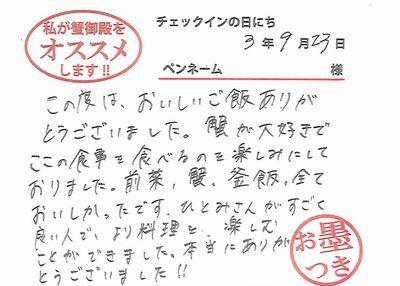 私が蟹御殿を
オススメ
します!!
チェックインの日にち
3年9月23日
ペンネーム 様
この度は、おいしいご飯ありが
とうございました。蟹が大好きで
ここの食事を食べるのを楽しみにして
おりました。前菜、蟹、釜飯、全て
おいしかったです。ひとみさんがすごく
良い人で、より料理を、楽しむ
ことができました。本当にありが
とうございました!!
お墨
つき